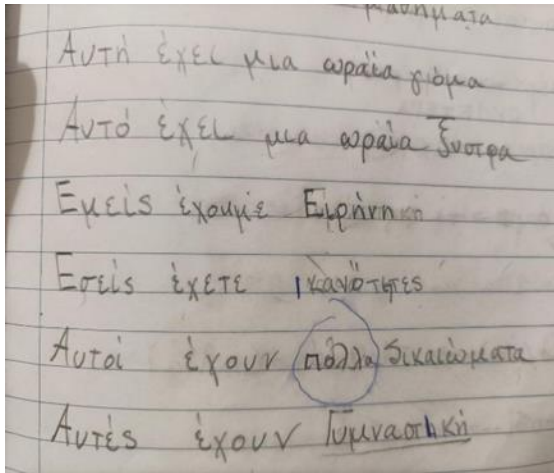 μαθήματα
Αυτή έχει μια ωραία γόμα
Αυτό έχει μια ωραία ξυστρα
Εμείς έχουμε Ειρήνη
Εσείς έχετε ικανότητες
Αυτοί έχουν πόλλα δικαιώματα
Αυτές έχουν Γυμναστική